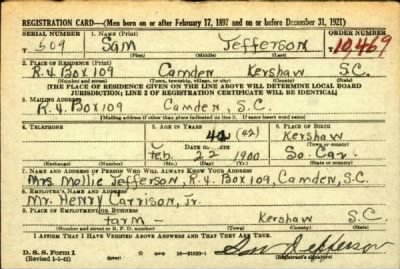 REGISTRATION CARD—(Men born on or after February 17, 1897 and on or before December 31, 1921)
SERIAL NUMBER 1. NAME (Print) ORDER NUMBER
509 Sam Jefferson 10,469
(First) (Middle) (Last)
2. PLACE OF RESIDENCE (Print)
R.4 Box 109 Camden Kershaw S.C.
(Number and street) (Town, township, village, or city) (County) (State)
[THE PLACE OF RESIDENCE GIVEN ON THE LINE ABOVE WILL DETERMINE LOCAL BOARD
JURISDICTION; LINE 2 OF REGISTRATION CERTIFICATE WILL BE IDENTICAL]
3. MAILING ADDRESS
R.4 Box 109 Camden, S.C.
[Mailing address if other than place indicated on line 2. If same insert word same]
4. TELEPHONE 5. AGE IN YEARS 6. PLACE OF BIRTH
(42) Kershaw
DATE OF BIRTH (Town or county)
Feb 22 1900 So. Car.
(Exchange) (Number) (Mo.) (Day) (Yr.) (State or country)
7. NAME AND ADDRESS OF PERSON WHO WILL ALWAYS KNOW YOUR ADDRESS
Mrs Mollie Jefferson, R.4, Box 109, Camden, S.C.
8. EMPLOYER'S NAME AND ADDRESS
Mr. Henry Carrison, Jr.
9. PLACE OF EMPLOYMENT OR BUSINESS
farm — Kershaw S.C.
(Number and street or R. F. D. number) (Town) (County) (State)
I AFFIRM THAT I HAVE VERIFIED ABOVE ANSWERS AND THAT THEY ARE TRUE.
D. S. S. Form 1
(Revised 1-1-42) (over) Sam Jefferson